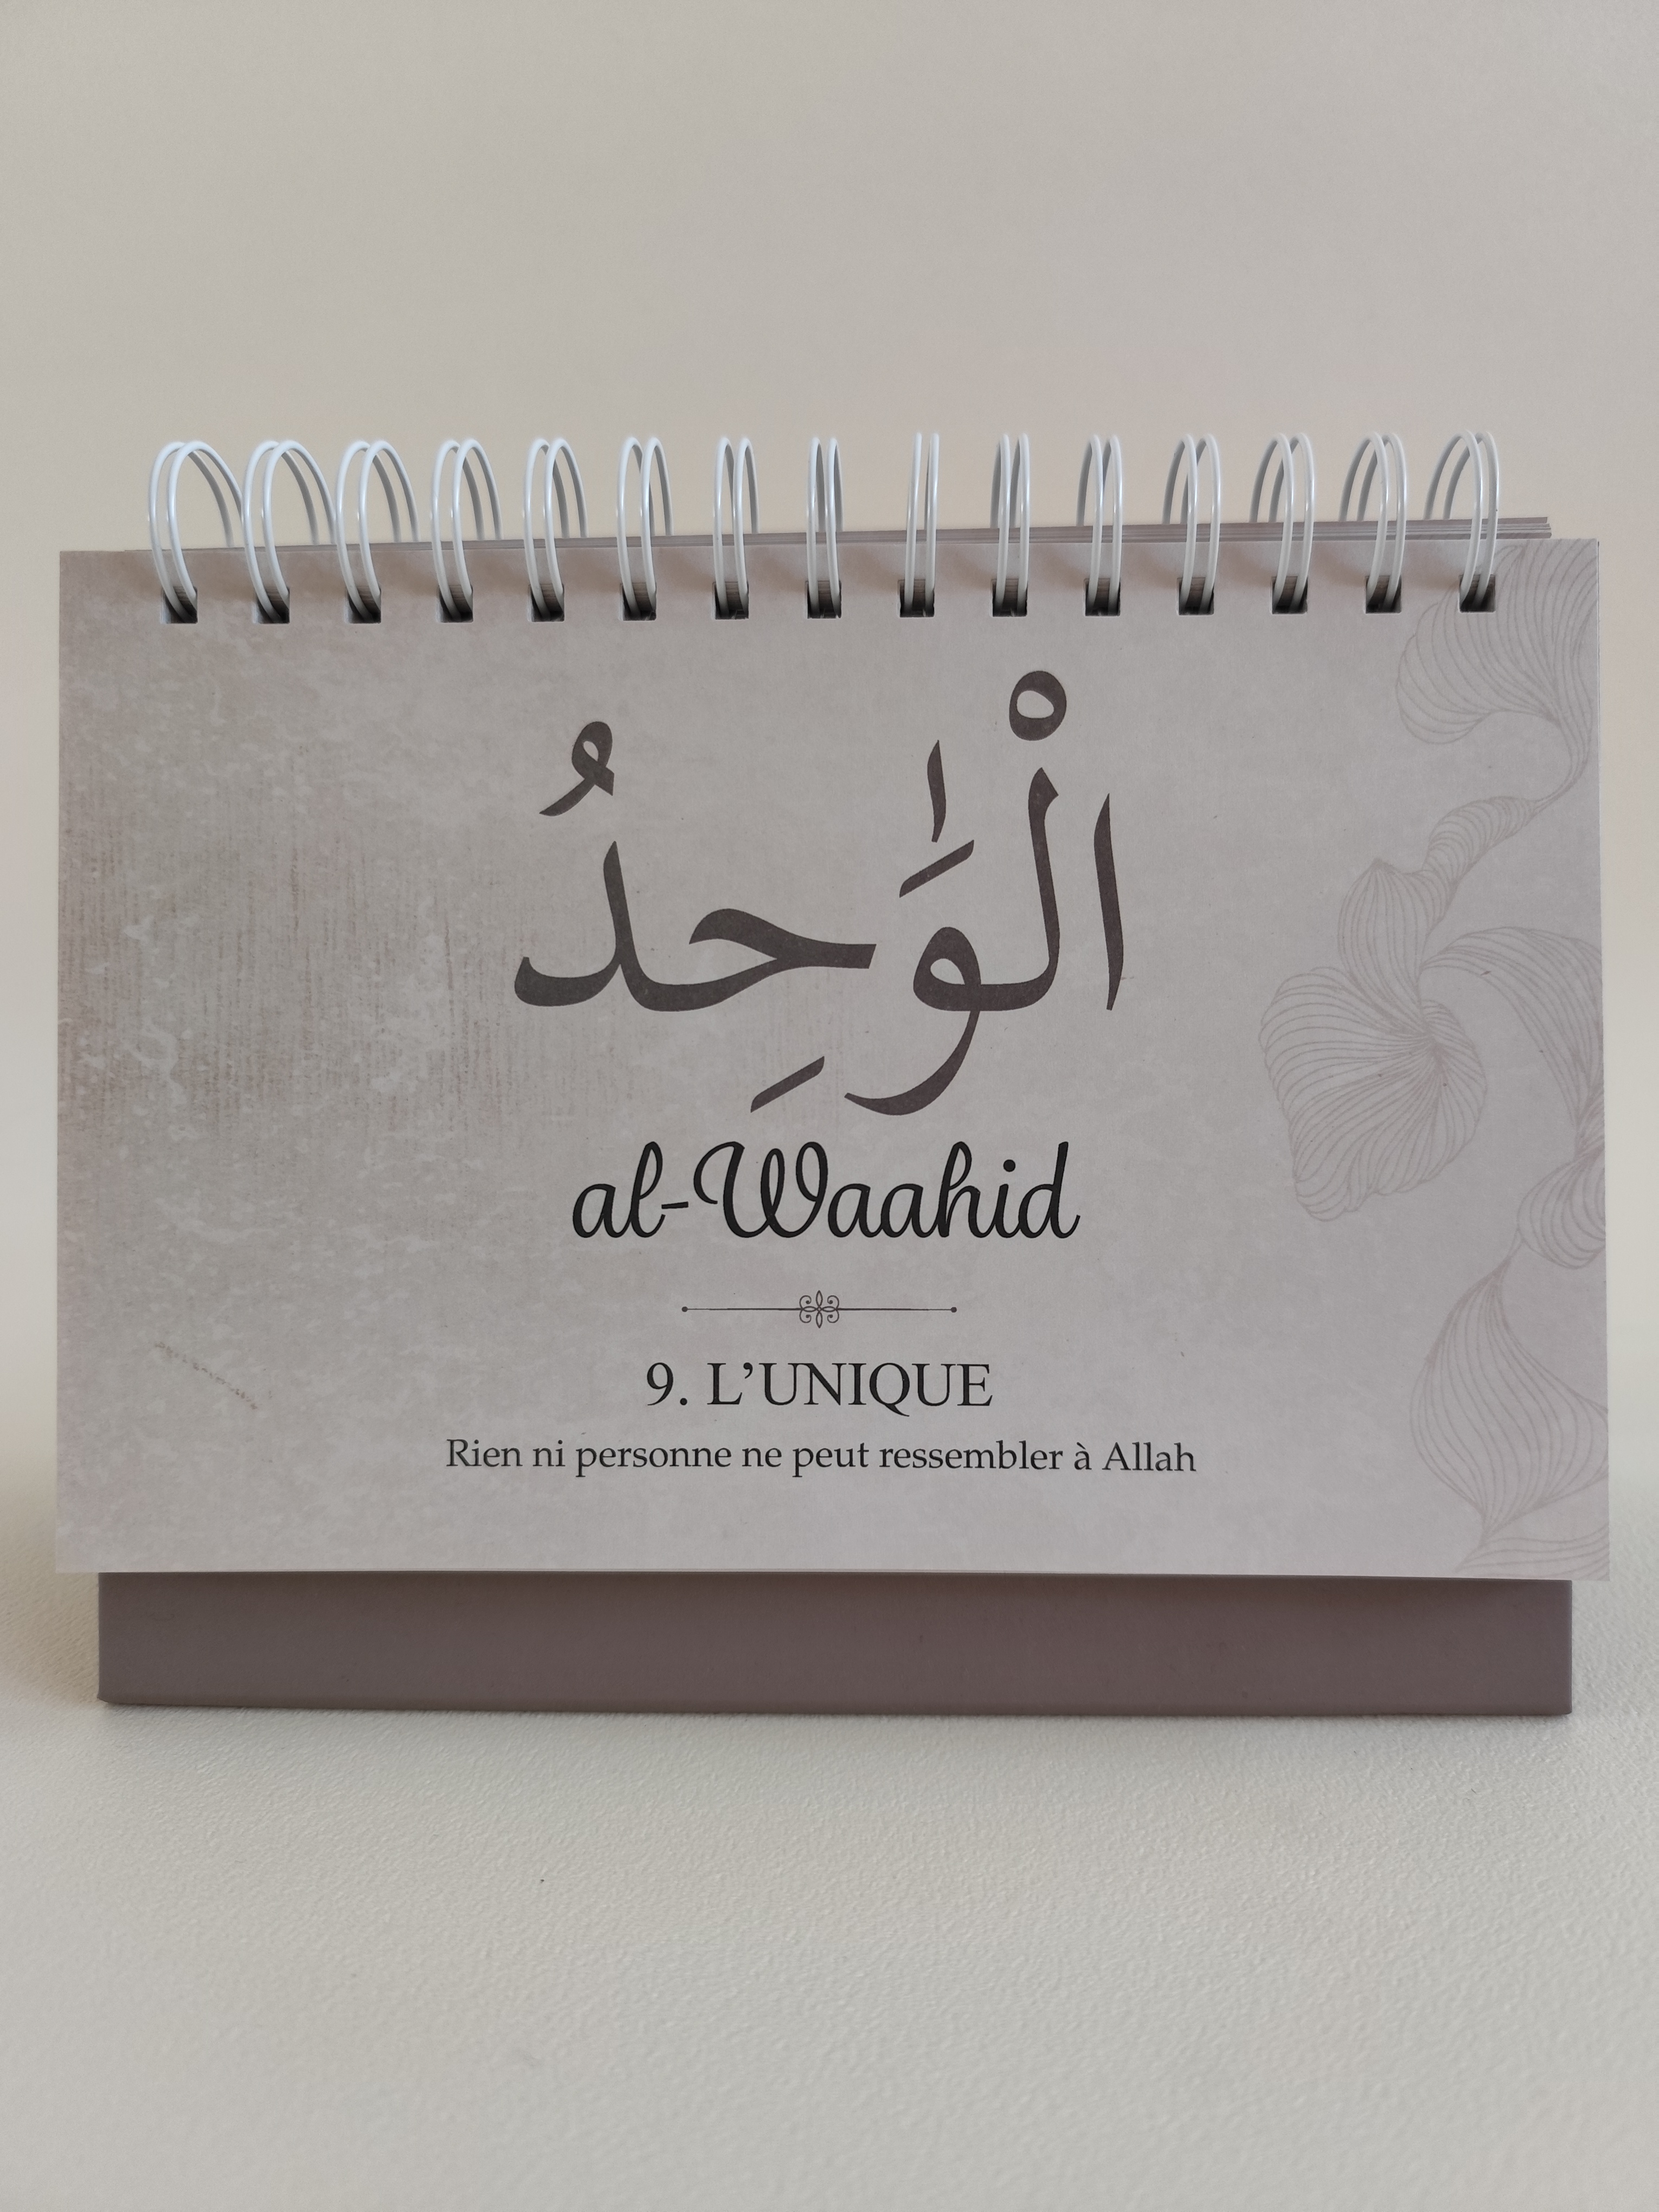 الْوَٰحِدُ
al-Waahid
9. L’UNIQUE
Rien ni personne ne peut ressembler à Allah